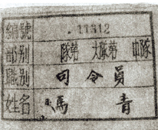 編號 11312
部别 勞隊 大隊 中隊
職别 司令員
姓名 馬青